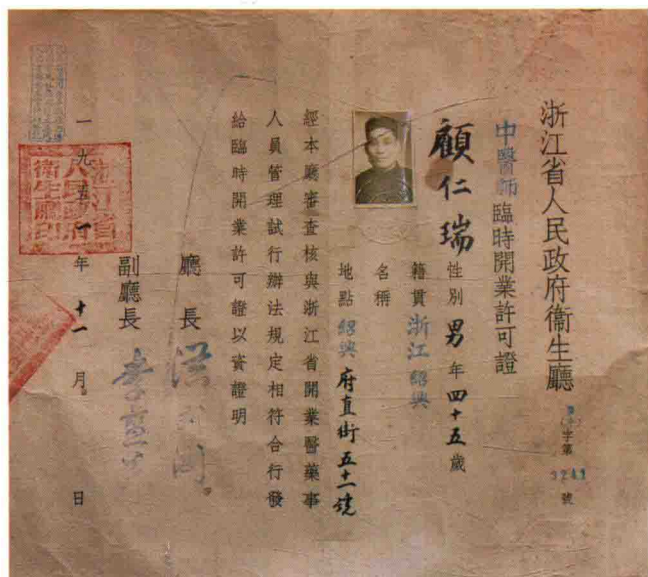 浙江省人民政府衞生廳
字第
號
中醫師臨時開業許可證
顧仁瑞
性別 男 年 四十五 歲
籍貫 浙江紹興
名稱
地點 紹興府直街五十一號
經本廳審查核與浙江省開業醫藥事
人員管理試行辦法規定相符合行發
給臨時開業許可證以資證明
廳長
副廳長
一九五一年十一月 日
浙江省人民政府衞生廳印